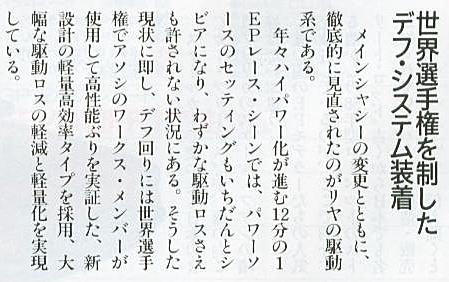 世界選手権を制した
デフ・システム装着
　メインシャシーの変更とともに、
徹底的に見直されたのがリヤの駆動
系である。
　年々ハイパワー化が進む12分の1
EPレース・シーンでは、パワーソ
ースのセッティングもいちだんとシ
ビアになり、わずかな駆動ロスさえ
も許されない状況にある。そうした
現状に即し、デフ回りには世界選手
権でアソシのワークス・メンバーが
使用して高性能ぶりを実証した、新
設計の軽量高効率タイプを採用、大
幅な駆動ロスの軽減と軽量化を実現
している。